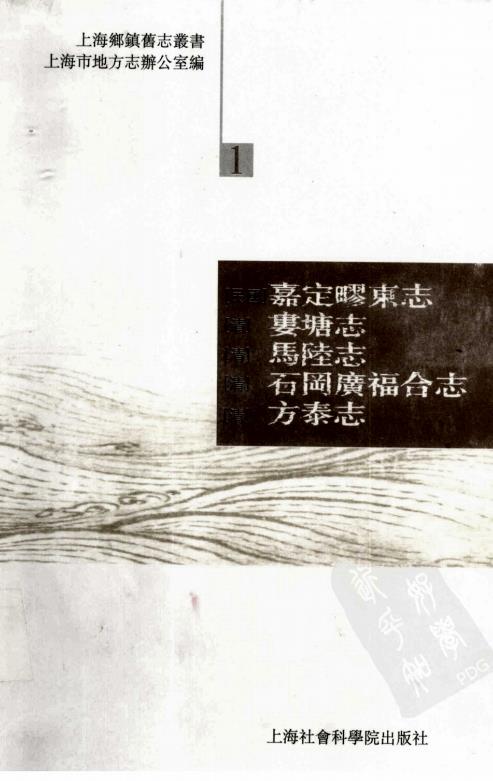 上海鄉鎮舊志叢書
上海市地方志辦公室編
1
民國 嘉定疁東志
清 婁塘志
清 馬陸志
清 石岡廣福合志
清 方泰志
好學
近乎知
PDG
上海社會科學院出版社